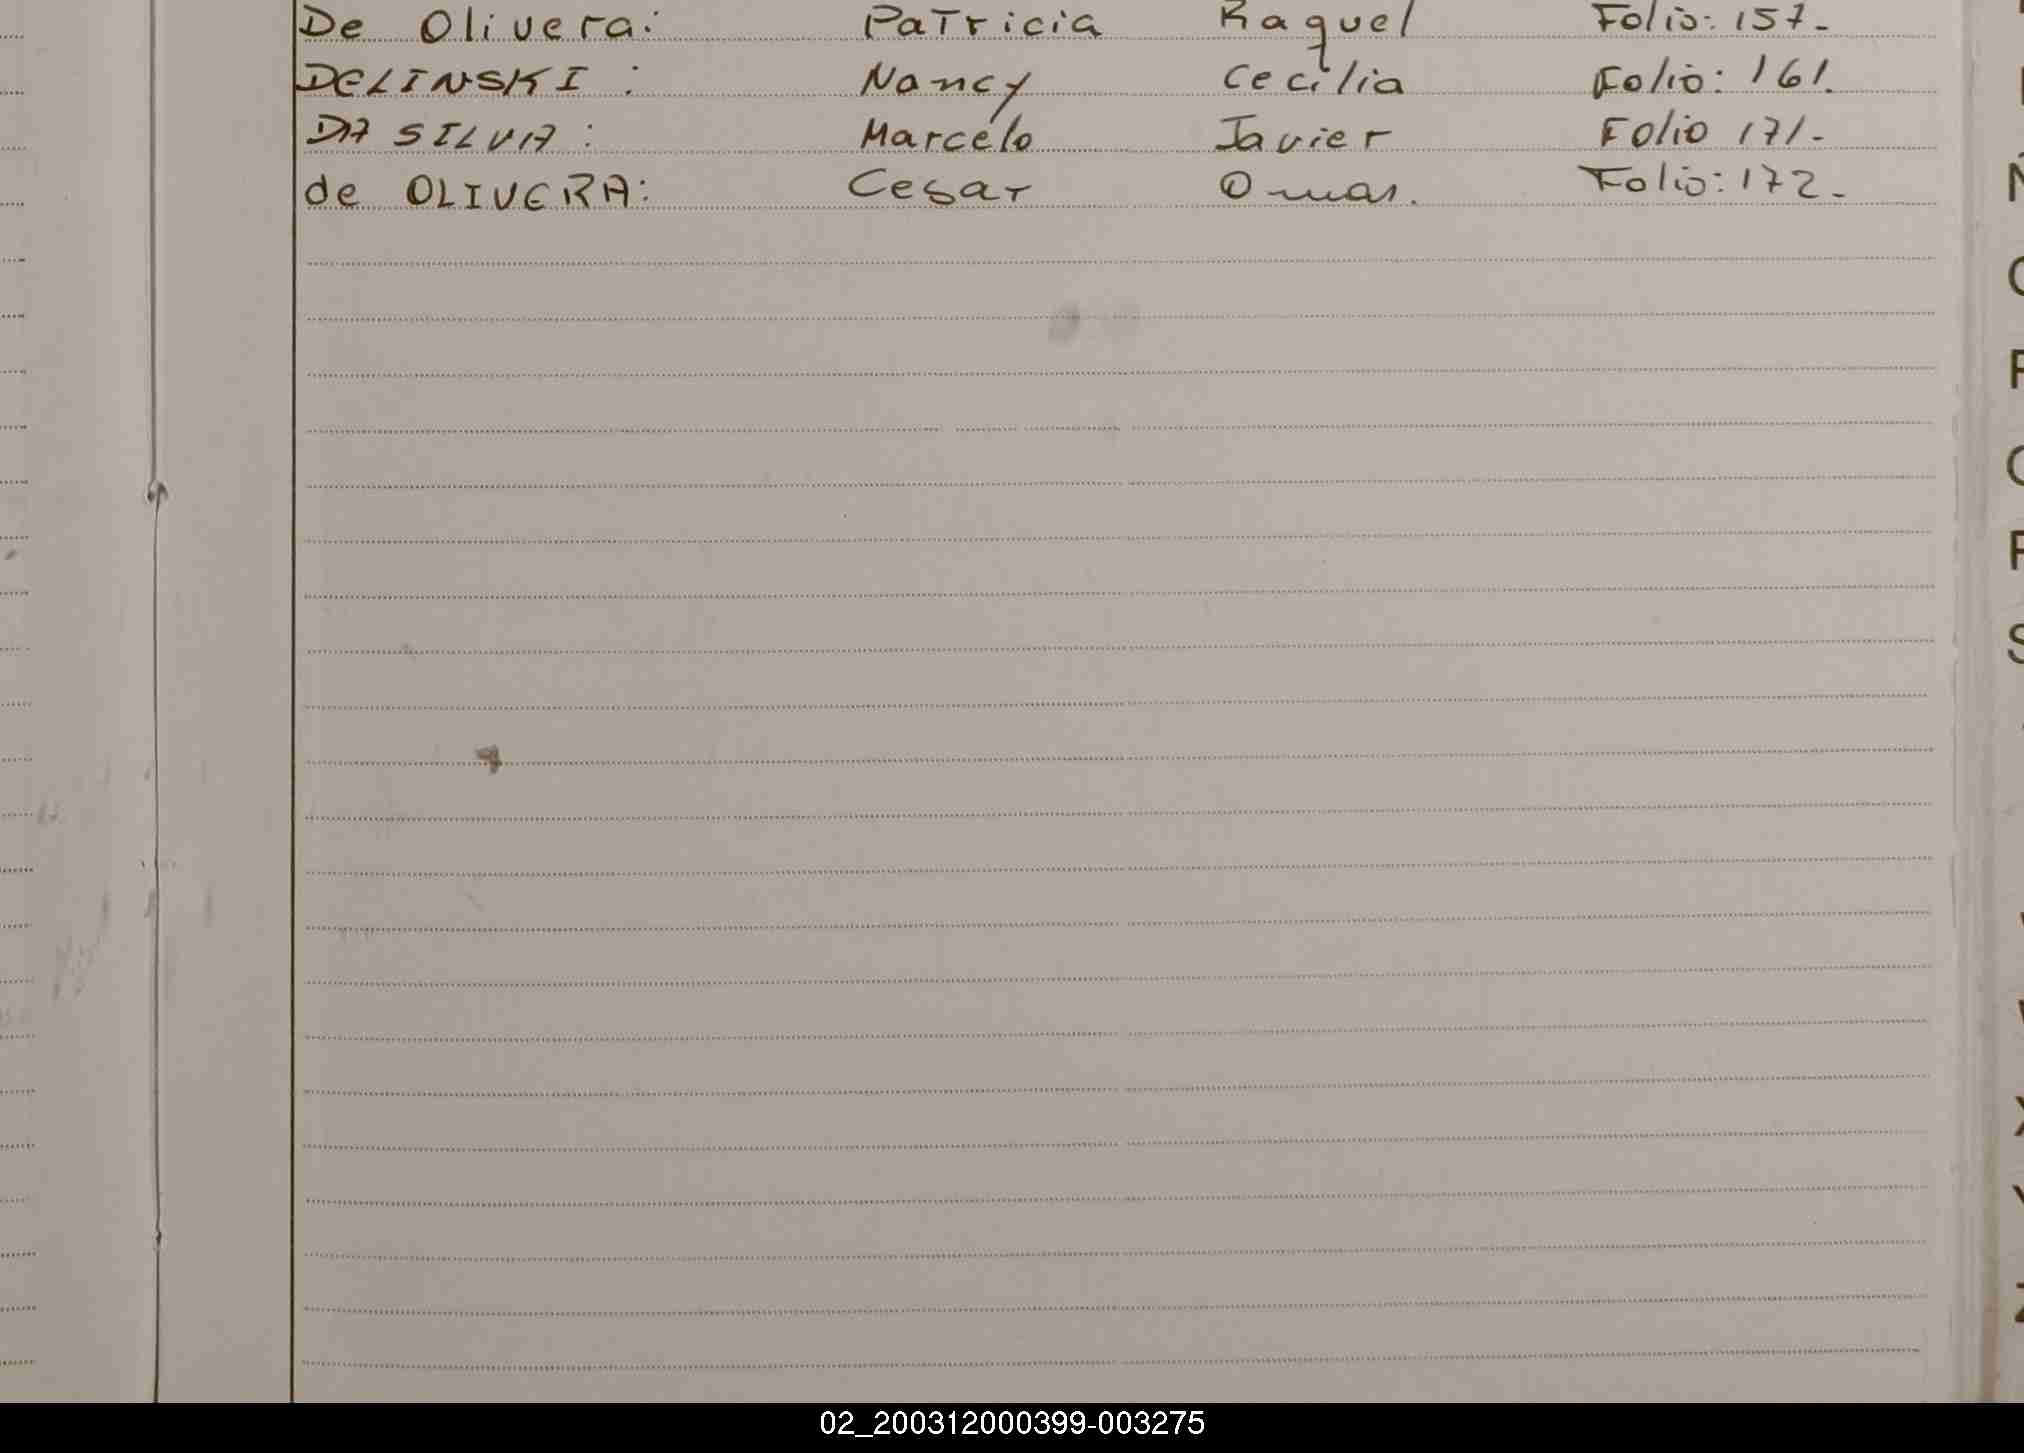 De Olivera: Patricia Raquel Folio: 157-
DELINSKI: Nancy Cecilia Folio: 161.
DA SILVA: Marcelo Javier Folio 171-
de OLIVERA: Cesar Omar. Folio: 172-
Ñ
S
X
Y
Z
02_200312000399-003275